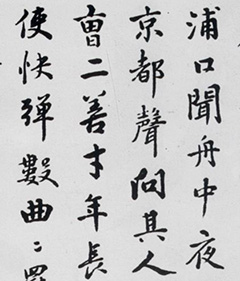 浦口聞舟中夜
京都聲問其人
曺二善才年長
使快弹數曲〻罷